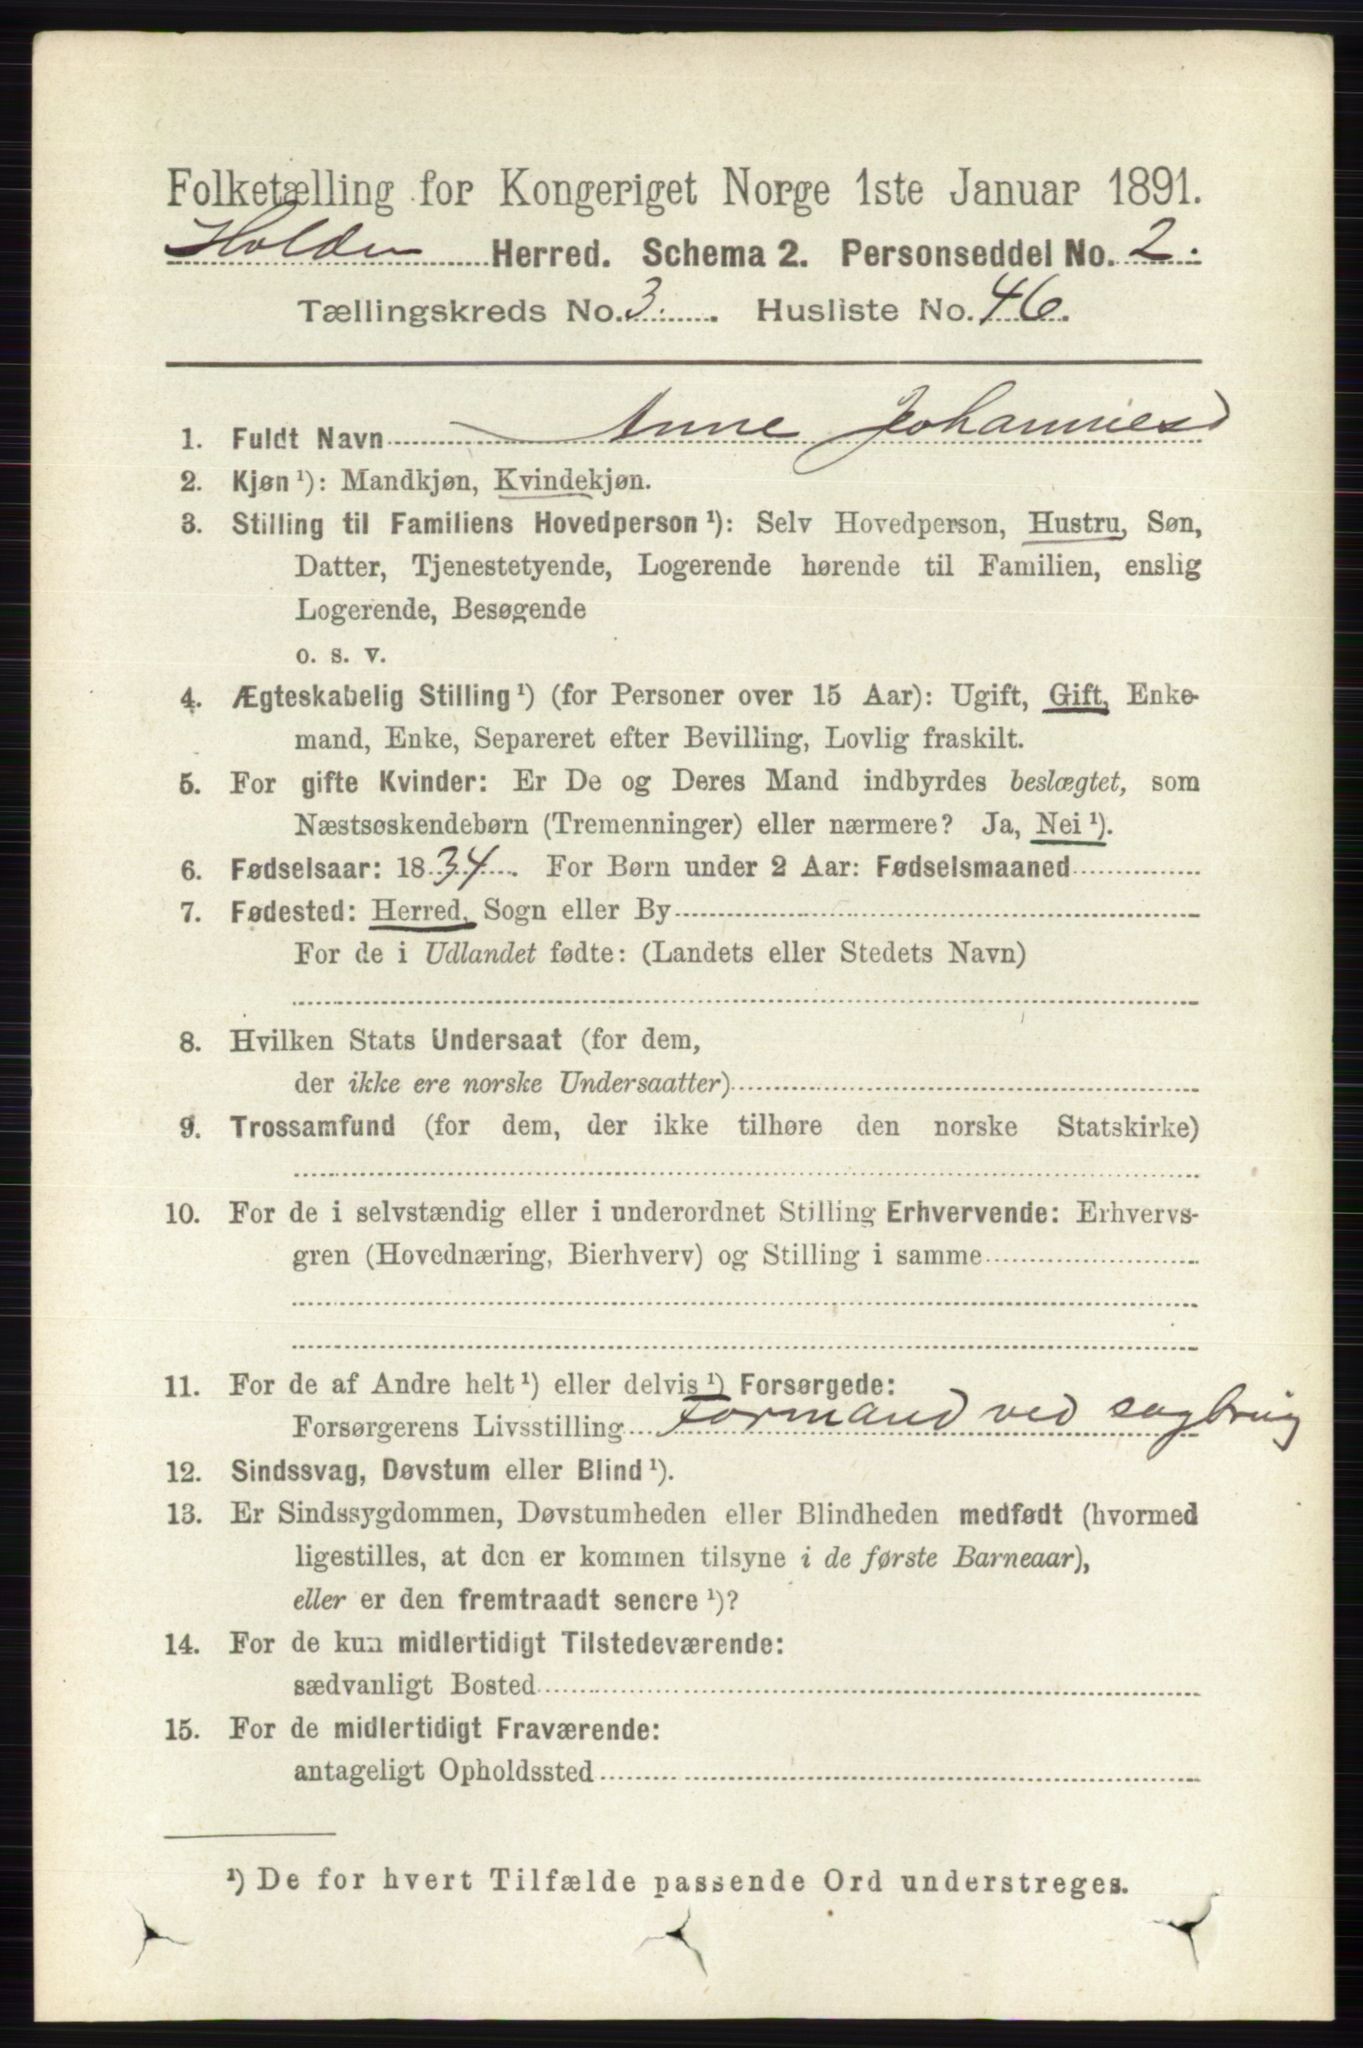 Folketælling for Kongeriget Norge 1ste Januar 1891.
Holden Herred. Schema 2. Personseddel No. 2.
Tællingskreds No. 3. Husliste No. 46.
1. Fuldt Navn Anne Johannesd
2. Kjøn ¹): Mandkjøn, Kvindekjøn.
3. Stilling til Familiens Hovedperson ¹): Selv Hovedperson, Hustru, Søn,
Datter, Tjenestetyende, Logerende hørende til Familien, enslig
Logerende, Besøgende
o. s. v.
4. Ægteskabelig Stilling ¹) (for Personer over 15 Aar): Ugift, Gift, Enke-
mand, Enke, Separeret efter Bevilling, Lovlig fraskilt.
5. For gifte Kvinder: Er De og Deres Mand indbyrdes beslægtet, som
Næstsøskendebørn (Tremenninger) eller nærmere? Ja, Nei ¹).
6. Fødselsaar: 1834. For Børn under 2 Aar: Fødselsmaaned
7. Fødested: Herred, Sogn eller By
For de i Udlandet fødte: (Landets eller Stedets Navn)
8. Hvilken Stats Undersaat (for dem,
der ikke ere norske Undersaatter)
9. Trossamfund (for dem, der ikke tilhøre den norske Statskirke)
10. For de i selvstændig eller i underordnet Stilling Erhvervende: Erhvervs-
gren (Hovednæring, Bierhverv) og Stilling i samme
11. For de af Andre helt ¹) eller delvis ¹) Forsørgede:
Forsørgerens Livsstilling Formand ved sagbrug
12. Sindssvag, Døvstum eller Blind ¹).
13. Er Sindssygdommen, Døvstumheden eller Blindheden medfødt (hvormed
ligestilles, at den er kommen tilsyne i de første Barneaar),
eller er den fremtraadt senere ¹)?
14. For de kun midlertidigt Tilstedeværende:
sædvanligt Bosted
15. For de midlertidigt Fraværende:
antageligt Opholdssted
¹) De for hvert Tilfælde passende Ord understreges.